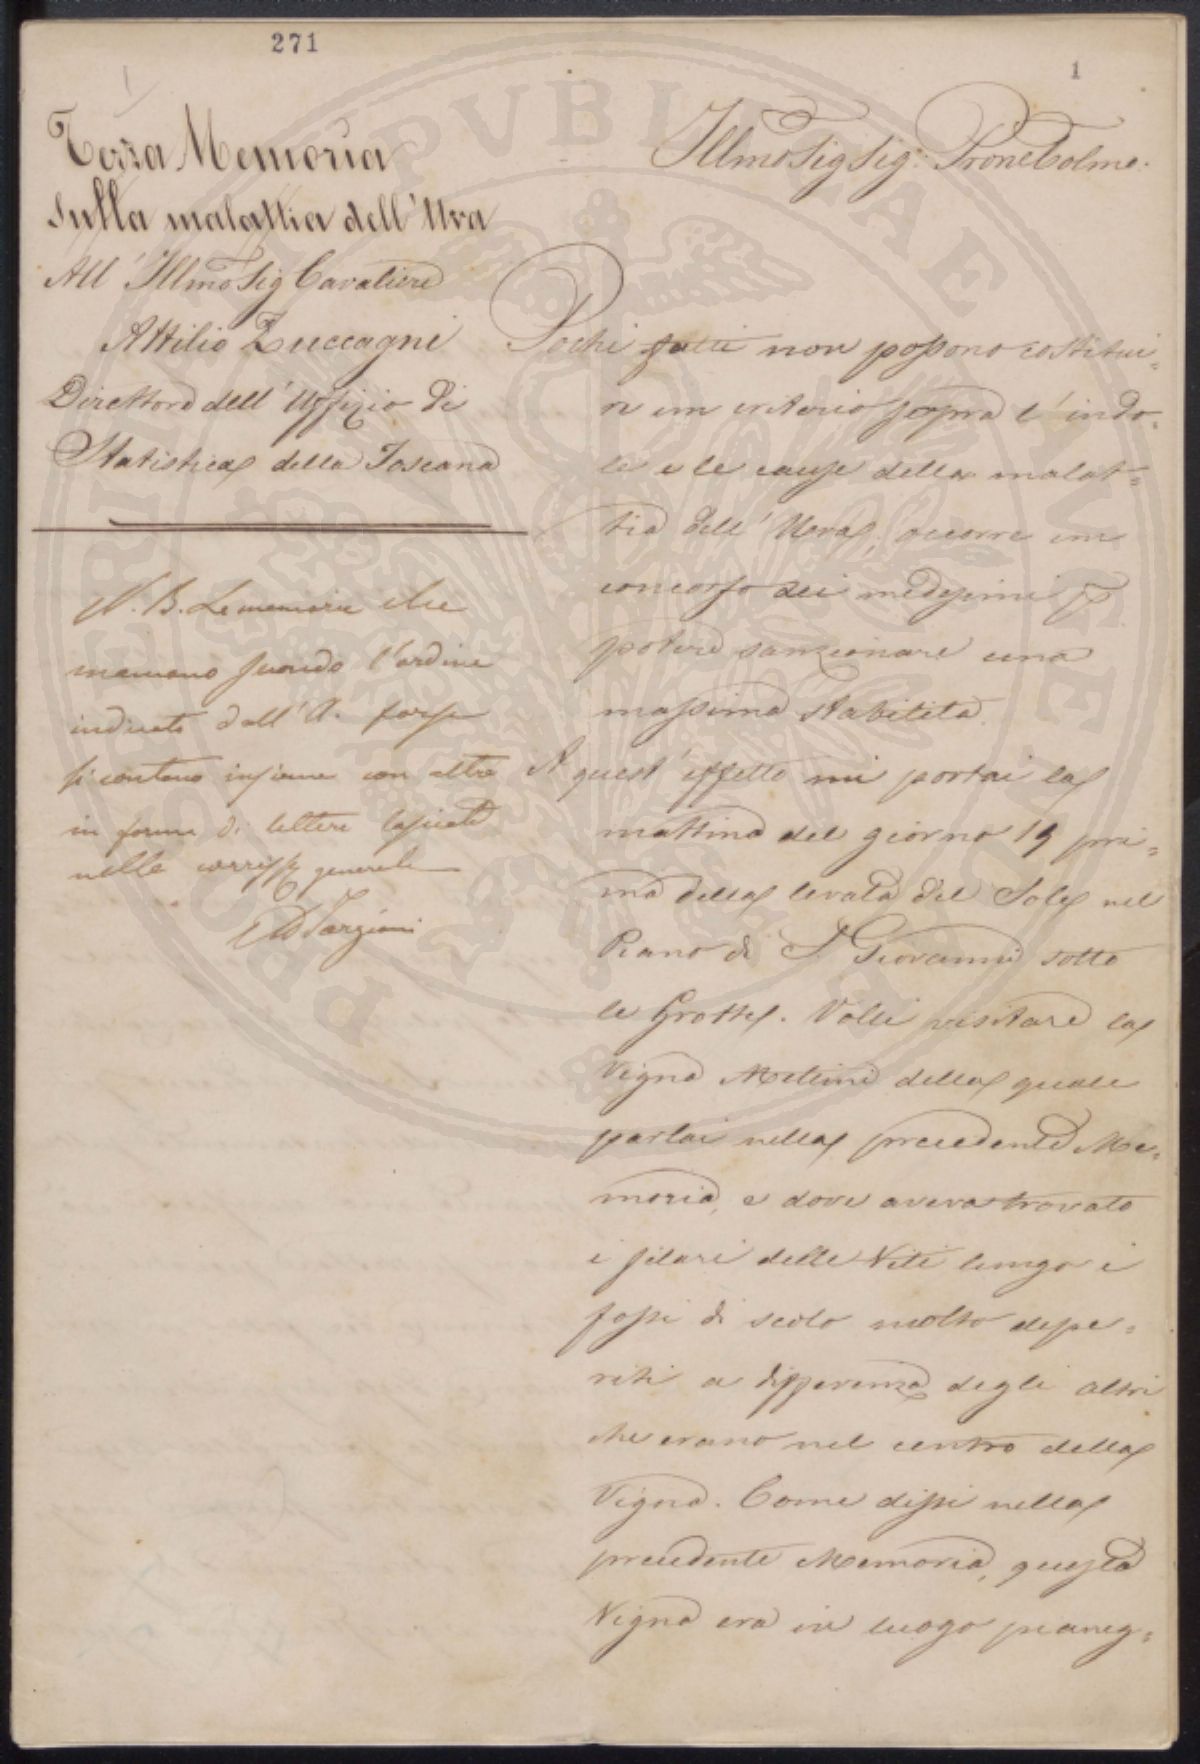 271
1
Terza Memoria
sulla malattia dell'Uva
All' Illmo Sig Cavaliere
Attilio Zuccagni
Direttore dell' Uffizio di
Statistica della Toscana
N. B. Le memorie che
mancano secondo l'ordine
indicato dall' A. forse
si contano insieme con altre
in forma di lettere
nelle generale
Targioni
Illmo Sig Sig: Prone Colmo.
Pochi fatti non possono costitui=
re un criterio sopra l' indo=
le e le cause della malat=
tia dell' Uva, occorre un
concorso dei medesimi P
potere sanzionare una
massima stabilita.
A quest' effetto mi portai la
mattina del giorno 19 pri=
ma della levata del Sole nel
Piano di S. Giovanni sotto
le Grotte. Volli visitare la
Vigna della quale
parlai nella precedente Me=
moria, e dove aveva trovato
i filari delle Viti lungo i
fossi di scolo molto depe=
riti a differenza degli altri
che erano nel centro della
Vigna. Come dissi nella
precedente Memoria, questa
Vigna era in luogo pianeg=
PUBLICAE